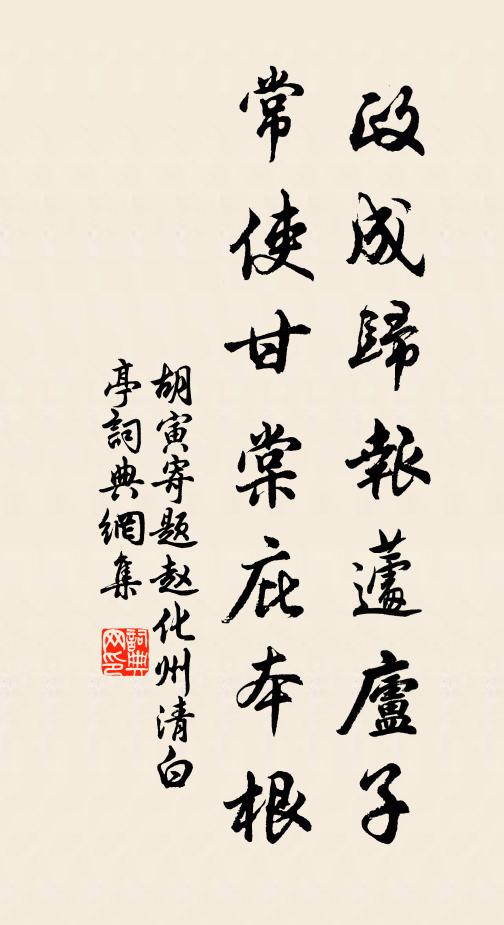 政成歸報蘧廬子
常使甘棠庇本根
胡寅寄題赵化州清白
亭詞典網集
詞典网印